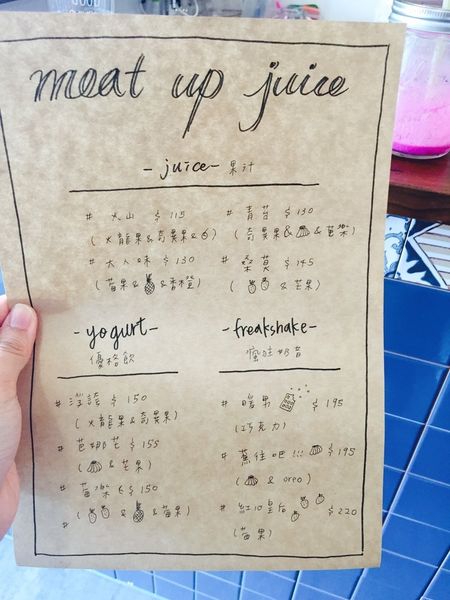 meat up juice
-juice- 果汁
# 火山 $115
(火龍果&奇異果&)
# 大人味 $130
(莓果&&香橙)
# 青苔 $130
(奇異果&&芭樂)
# 桑莫 $145
(&芒果)
-yogurt-
優格飲
# 浮誇 $150
(火龍果&奇異果)
# 芭娜芒 $155
(&芒果)
# $150
(&&莓果)
#
-freakshake-
瘋昔奶昔
# 暖男 $195
(巧克力)
# 蕉往吧!!! $195
(& oreo)
# 紅心皇后 $220
(莓果)